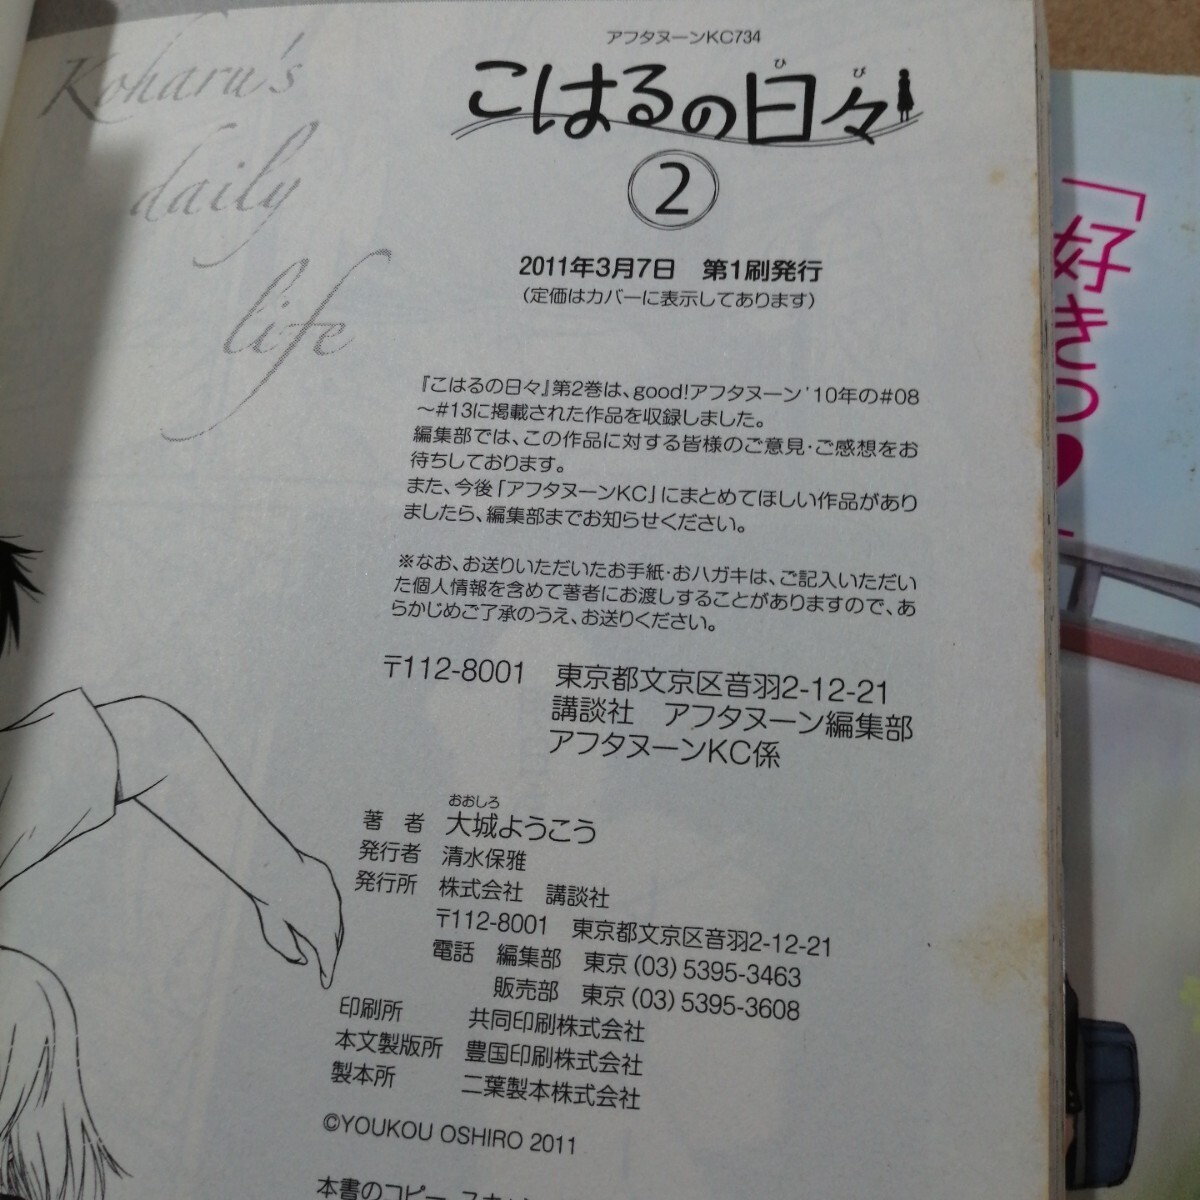 Koharu's
daily
life
アフタヌーンKC734
こはるの日々
ひ び
2
2011年3月7日 第1刷発行
(定価はカバーに表示してあります)
『こはるの日々』第2巻は、good!アフタヌーン'10年の#08
～#13に掲載された作品を収録しました。
編集部では、この作品に対する皆様のご意見・ご感想をお
待ちしております。
また、今後「アフタヌーンKC」にまとめてほしい作品があり
ましたら、編集部までお知らせください。
※なお、お送りいただいたお手紙・おハガキは、ご記入いただい
た個人情報を含めて著者にお渡しすることがありますので、あ
らかじめご了承のうえ、お送りください。
〒112-8001 東京都文京区音羽2-12-21
講談社 アフタヌーン編集部
アフタヌーンKC係
おおしろ
著 者 大城ようこう
発行者 清水保雅
発行所 株式会社 講談社
〒112-8001 東京都文京区音羽2-12-21
電話 編集部 東京(03)5395-3463
販売部 東京(03)5395-3608
印刷所 共同印刷株式会社
本文製版所 豊国印刷株式会社
製本所 二葉製本株式会社
©YOUKOU OSHIRO 2011
本書のコピー、スキャ
「好きっ♥」